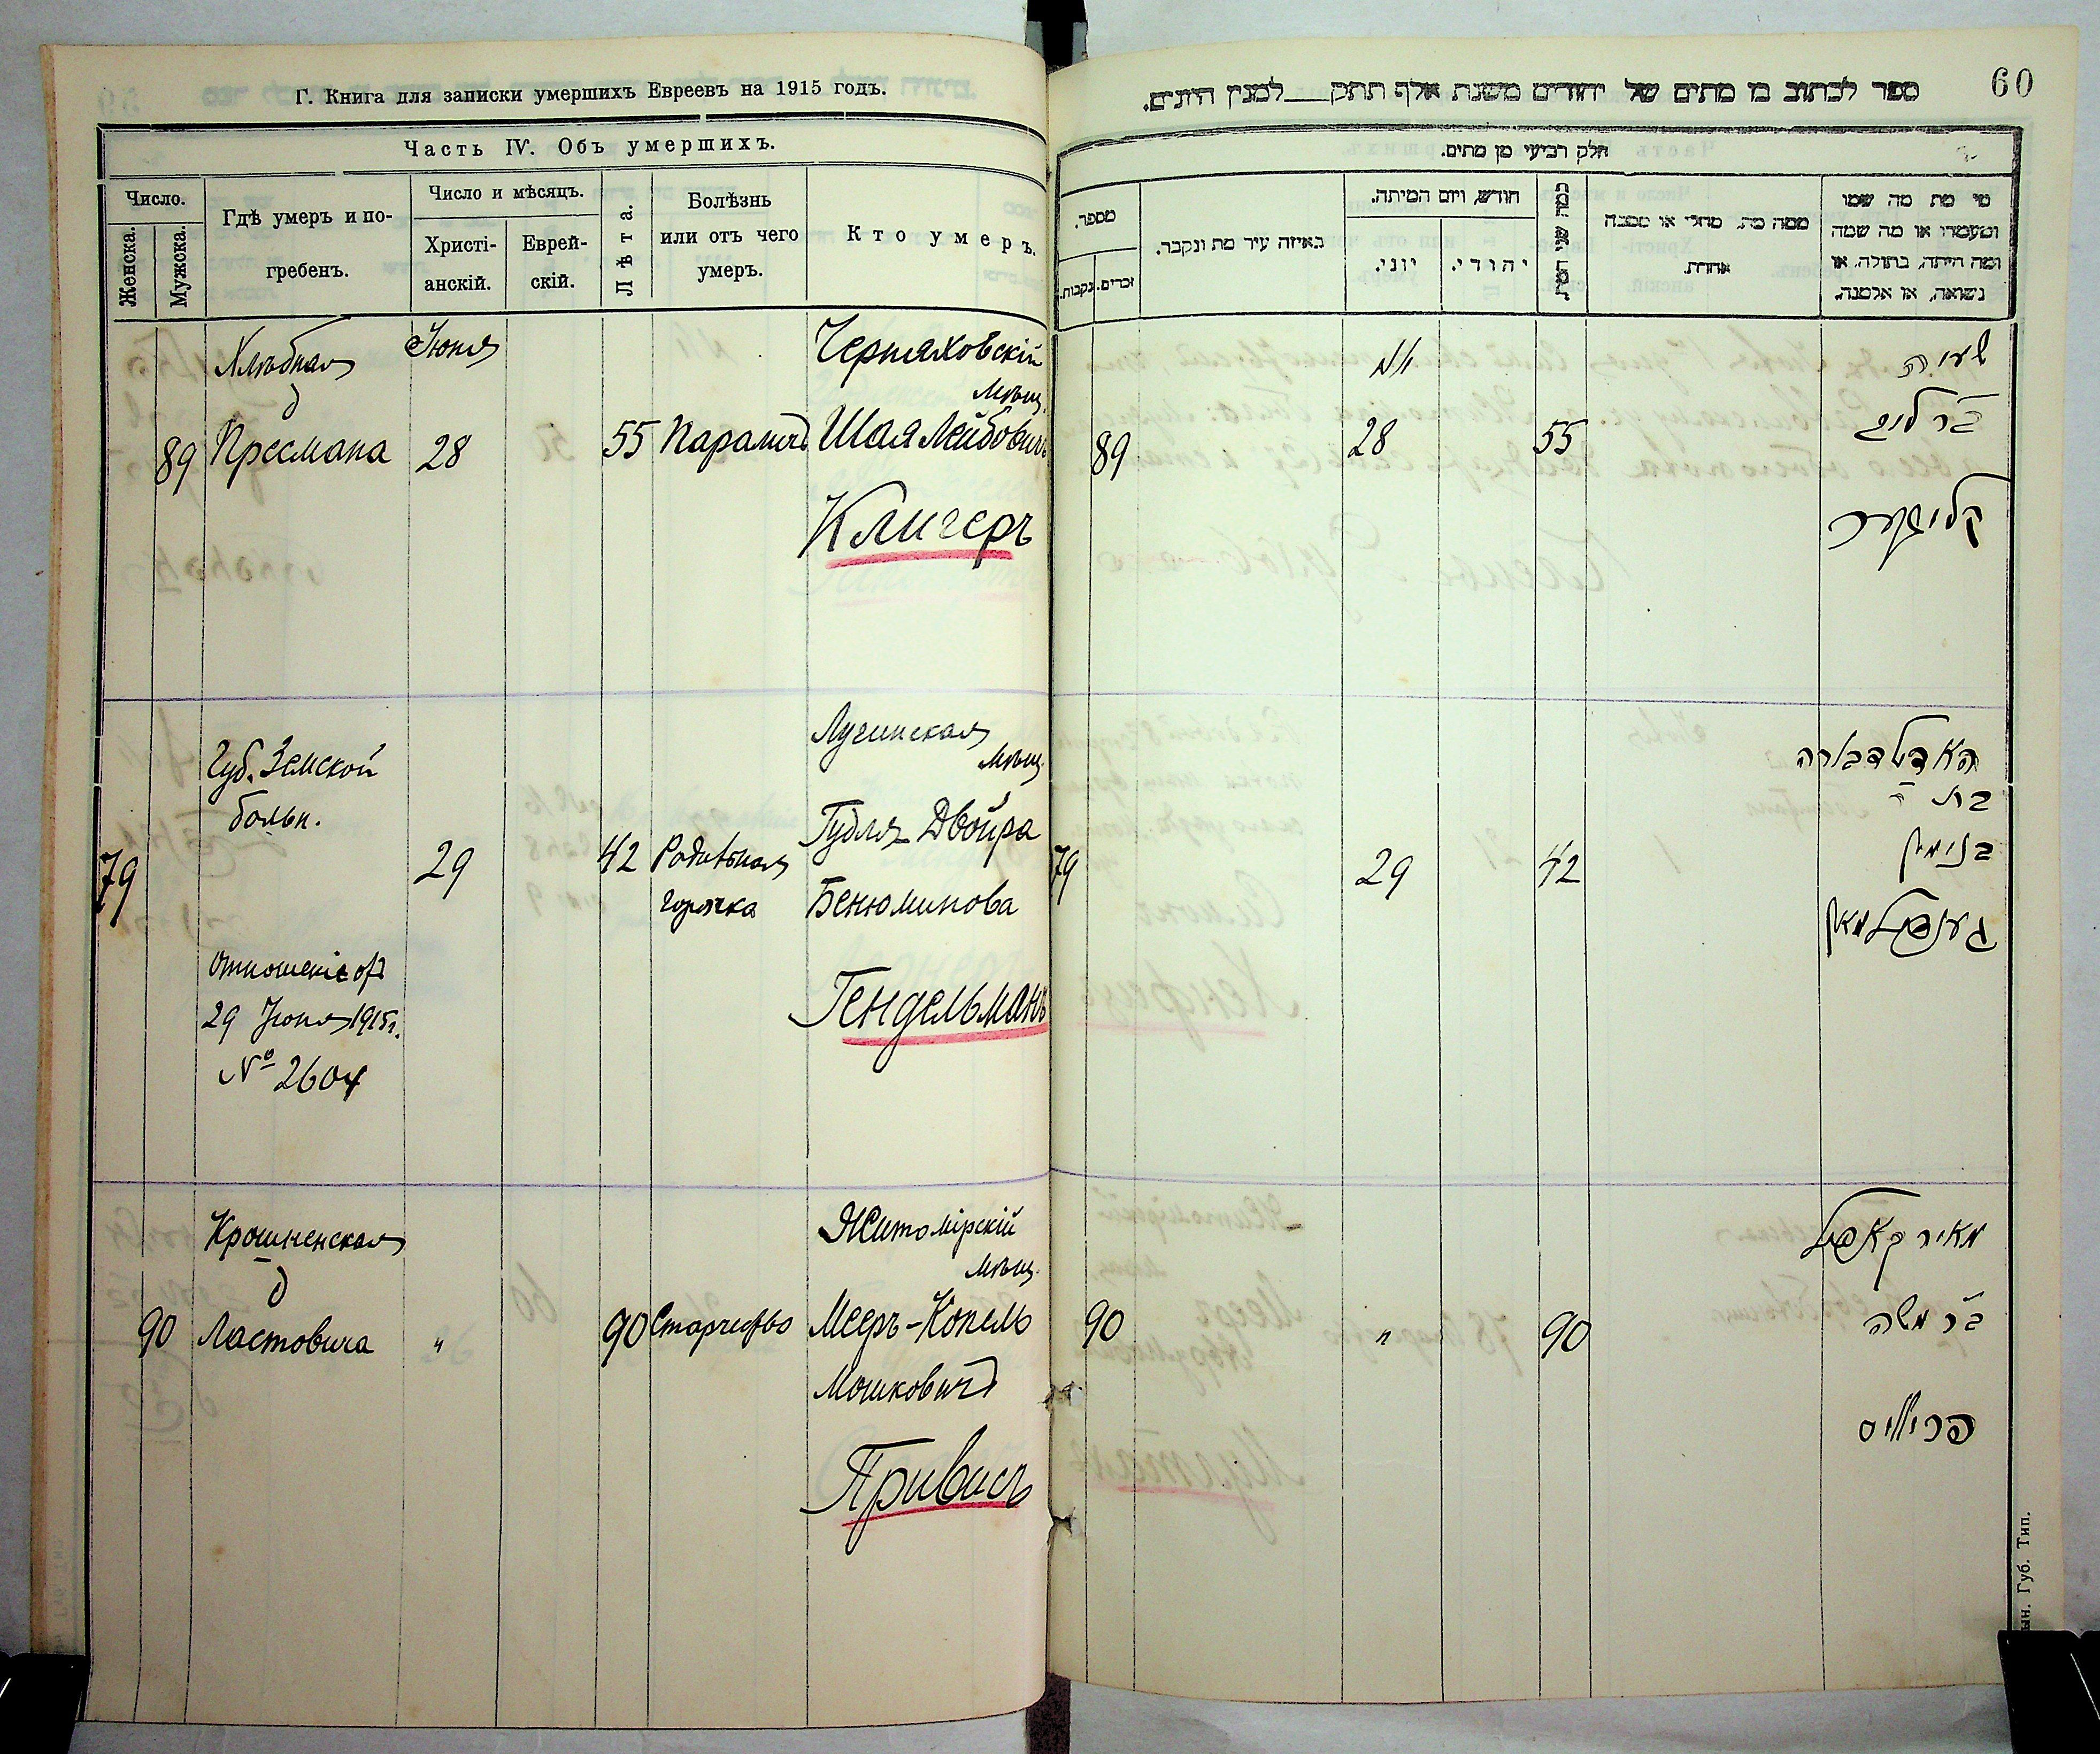 Г. Книга для записки умершихъ Евреевъ на 1915 годъ.
Часть IV. Объ умершихъ.
Число.
Женска.
Мужска.
Гдѣ умеръ и по-
гребенъ.
Число и мѣсяцъ.
Христі-
анскій.
Еврей-
скій.
Лѣта.
Болѣзнь
или отъ чего
умеръ.
Кто умеръ.
89
Хлѣбная
д
Пресмана
Июня
28
55
Параличъ
Черняховскій
мѣщ.
Шая Лейбовичъ
Клигеръ
79
Губ. Земской
больн.
Отношеніе от
29 Июня 1915 г.
№ 2604
29
42
горячка
Лугинская
мѣщ.
Гудля-Двойра
Бенюминова
Гендельманъ
90
Крошненская
д
Ластовича
"
90
Старчество
Житомірскій
мѣщ.
Мееръ-Копель
Мошковичъ
Привисъ
60
ספר לכתוב בו מתים של יהודים משנת אלף תתק__למנין היונים.
חלק רביעי מן מתים.
מספר.
נקבות.
זכרים.
באיזה עיר מת ונקבר.
חודש, ויום המיתה.
יוני.
יהודי.
כמה שני המת
ממה מת. מחלי או מסבה
אחרת.
מי מת מה שמו
ומעמדו או מה שמה
ומה היתה, בתולה. או
נשואה, או אלמנה.
89
28
55
שעיה
ב״ר ליב
קליגער
79
29
42
בת
בנימין
געננדלמאן
90
"
90
מאיר קאפיל
ב״ר משה
פריוויס
ын. Губ. Тип.